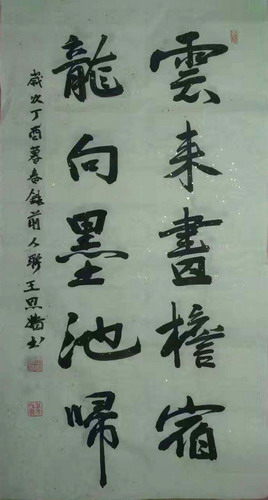 雲来畫檐宿
龍向墨池歸
歲次丁酉暮春錄前人聯王思書